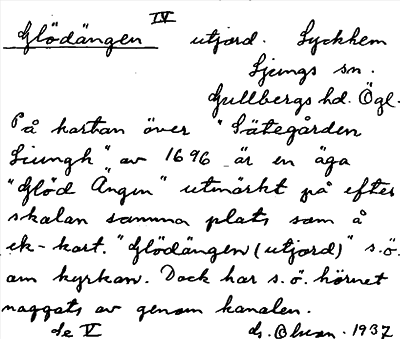 IV
Glödängen utjord. Lyckhem
Ljungs sn.
Gullbergs hd. Ögl.
På kartan över "Sätegården
Liungh" av 1696 är en äga
"Glöd Ängen" utmärkt på efter
skalan samma plats som å
ek-kart. "Glödängen (utjord)" s.ö.
om kyrkan. Dock har s.ö. hörnet
naggats av genom kanalen.
Se V G. Olson. 1937